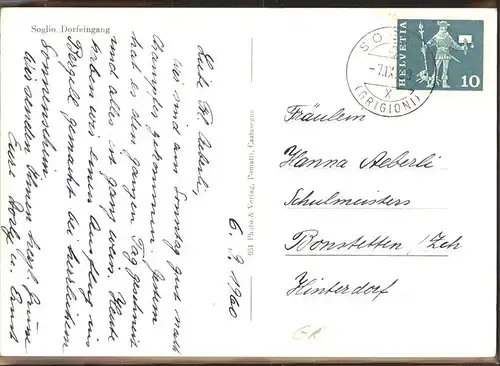 Soglio Dorfeingang
6. 9. 1960
Liebe Frl. Aeberli,
wir sind am Sonntag gut nach
gekommen. Gestern
hat es den ganzen Tag geschneit
und alles ist ganz weiss. Heute
haben wir einen Ausflug ins
Bergell gemacht bei herrlichem
Sonnenschein.
wir senden Ihnen herzl. Grüsse
Eure u. Ernst
051 Photo & Verlag, Pomatti, Castasegna
SO
-7.IX
X
(GRIGIONI)
HELVETIA
10
Fräulein
Hanna Aeberli
Schulmeisters
Bonstetten / Zch
Hinterdorf